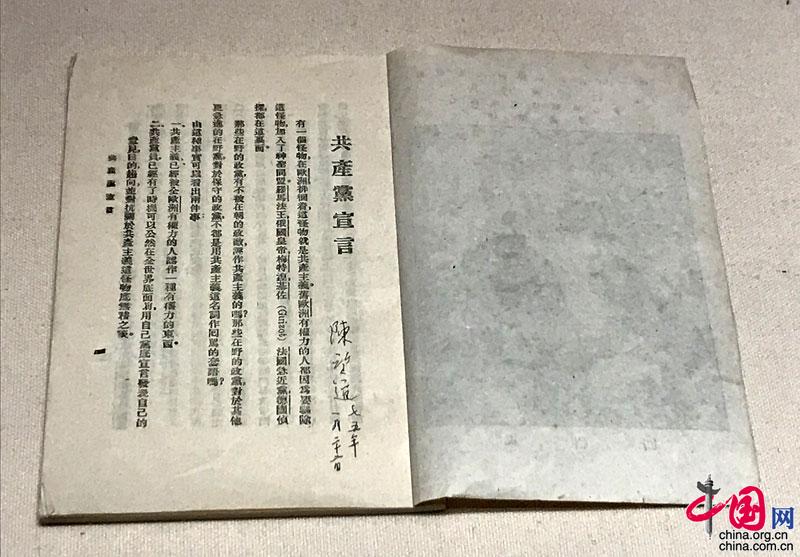 共產黨宣言
有一個怪物,在歐洲徘徊着,這怪物就是共產主義。舊歐洲有權力的人都因爲要驅除
這怪物,加入了神聖同盟。羅馬法王,俄國皇帝,梅特涅,基佐(Guizot),法國急近黨,德國偵
探,都在這裏面。
那些在野的政黨,有不被在朝的政敵,誣作共產主義的嗎?那些在野的政黨,對於其他
更急進的在野黨,對於保守的政黨,不都是用共產主義這名詞作回罵的套語嗎?
由這種事實可以看出兩件事:
一、共產主義,已經被全歐洲有權力的人認作一種有權力的東西。
二、共產黨員,已經有了時機可以公然在全世界底面前,用自己黨底宣言發表自己的
意見,目的,趨向,並對抗關於共產主義這怪物底無稽之談。
共產黨宣言
陳望道
七五年
一月二十
中国网
china.org.cn
china.com.cn